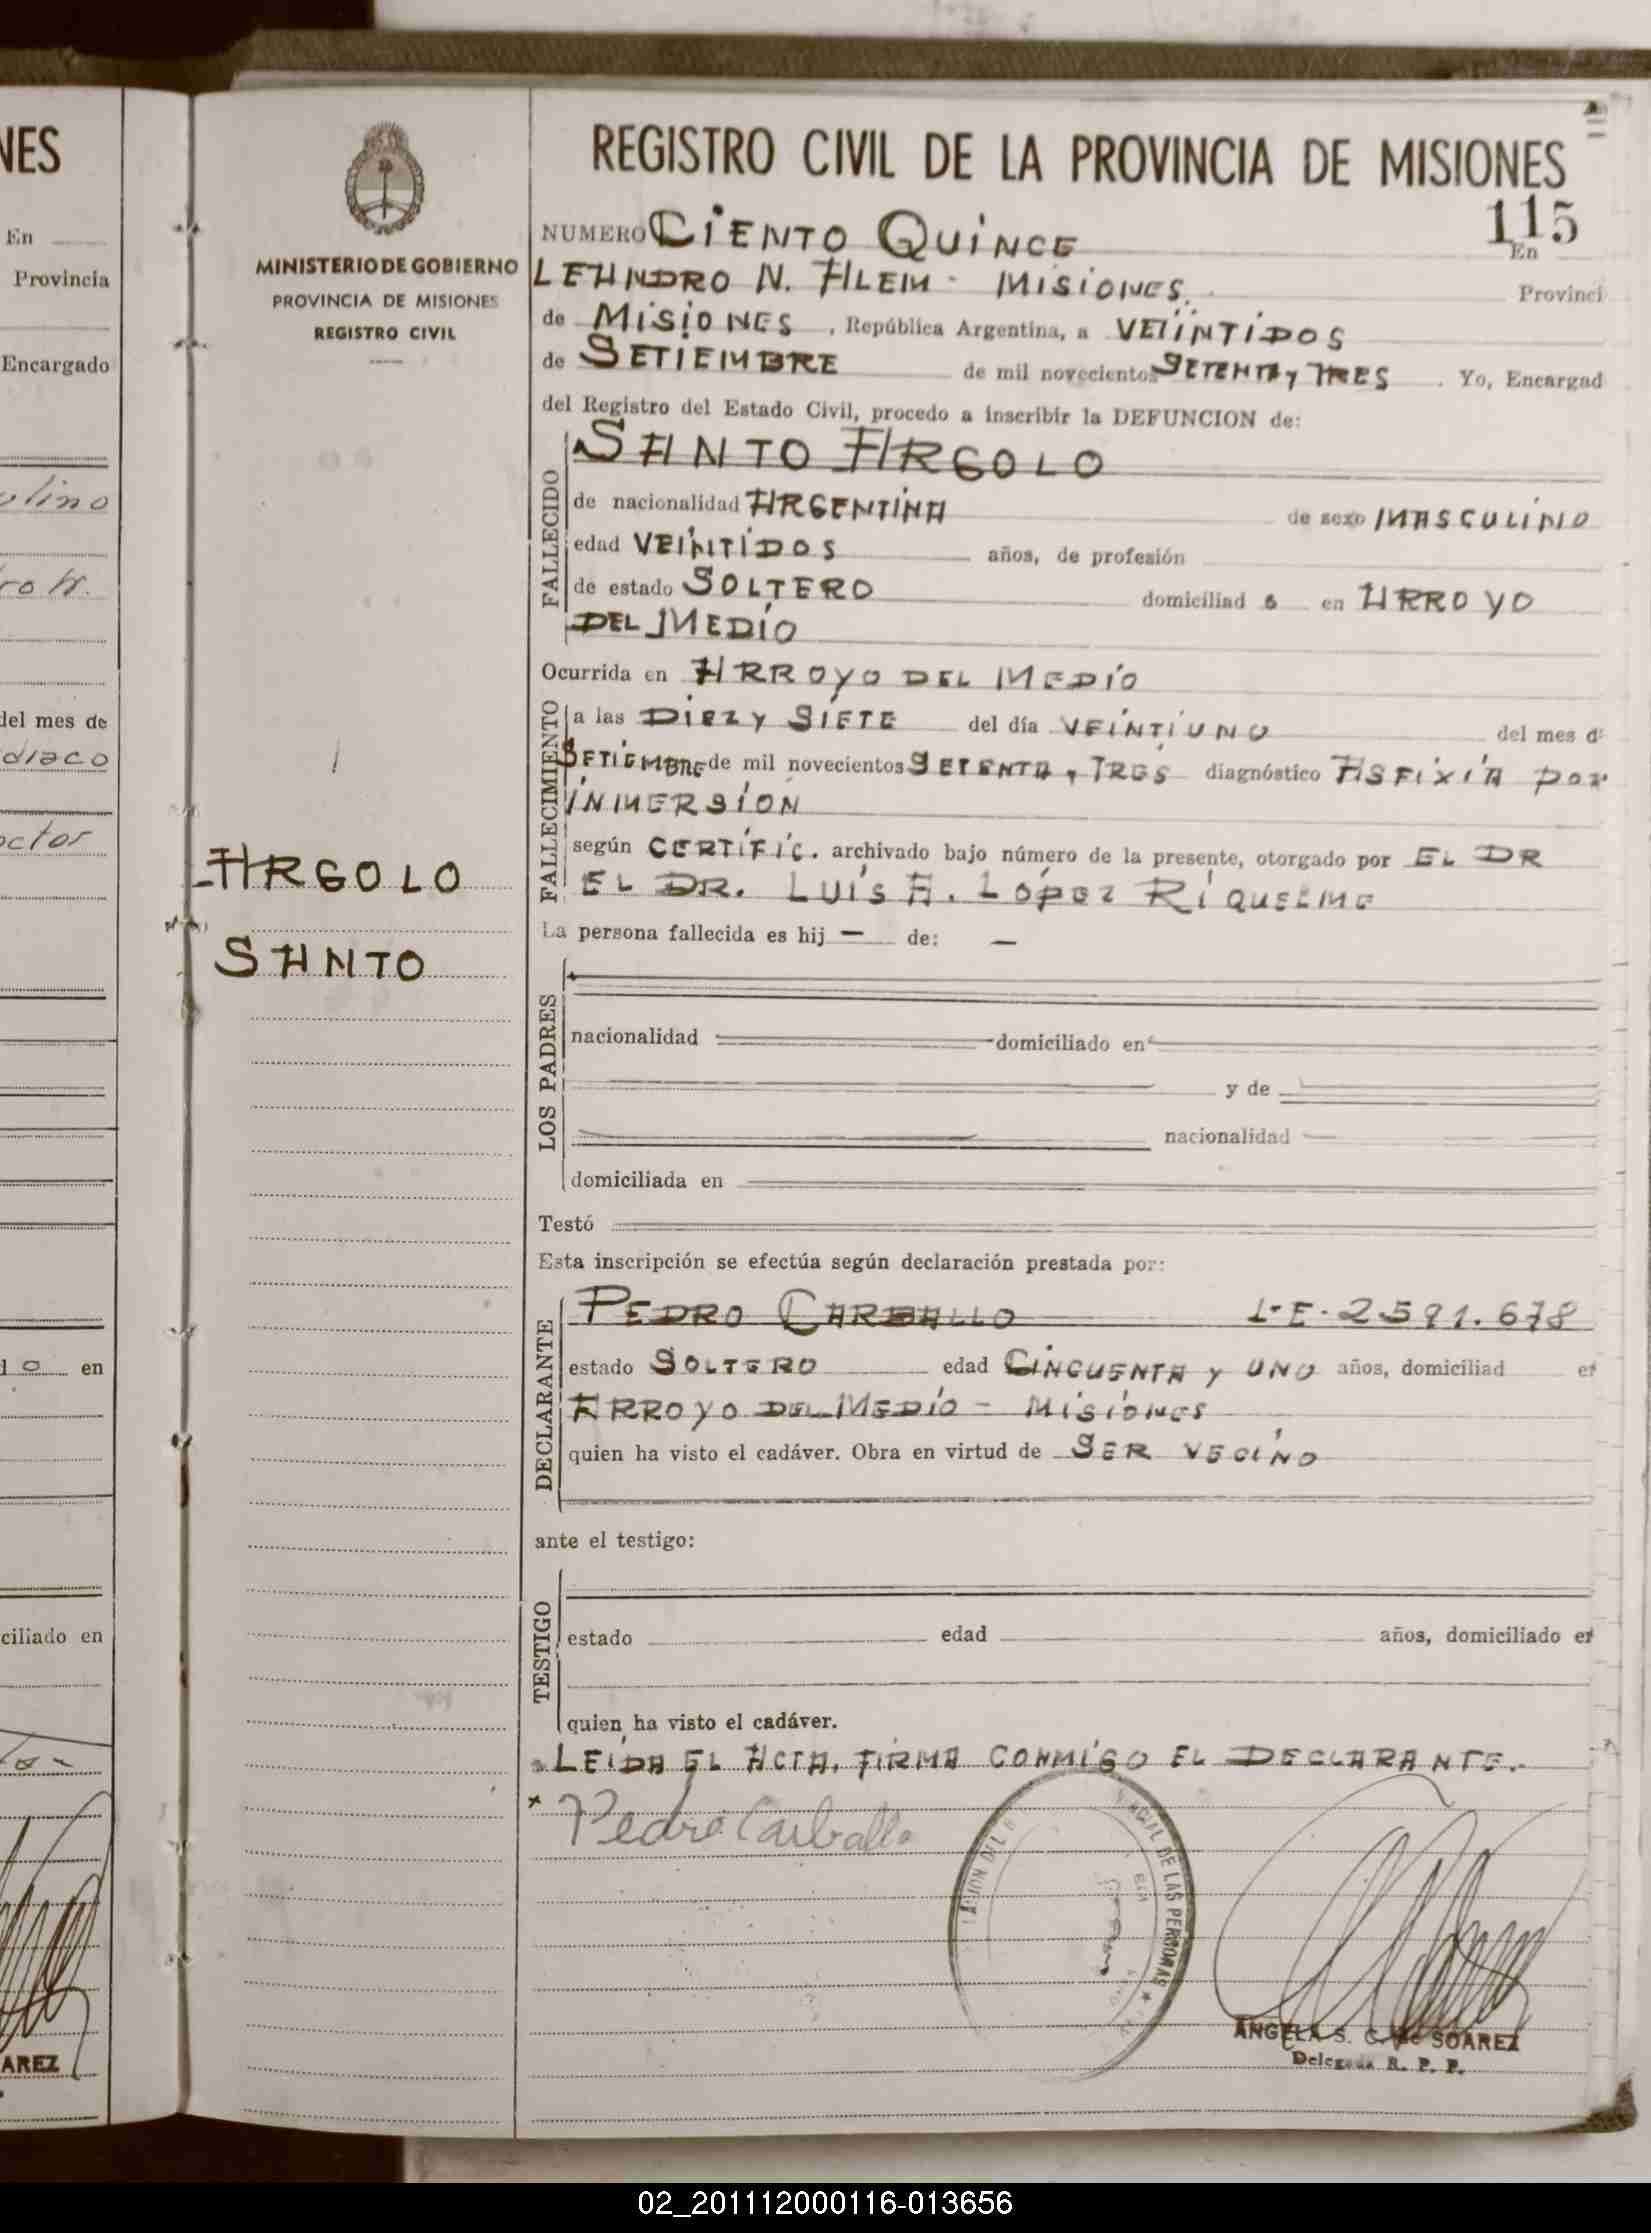 NES
En
Provincia
Encargado
del mes de
diaco
ctor
o en
ciliado en
AREZ
MINISTERIO DE GOBIERNO
PROVINCIA DE MISIONES
REGISTRO CIVIL
ARGOLO
SANTO
REGISTRO CIVIL DE LA PROVINCIA DE MISIONES
NUMERO CIENTO QUINCE 115
En
LEANDRO N. ALEM - MISIONES. Provinci
de MISIONES, República Argentina, a VEIINTIDOS
de SETIEMBRE de mil novecientos SETENTA y TRES. Yo, Encargad
del Registro del Estado Civil, procedo a inscribir la DEFUNCION de:
FALLECIDO
SANTO ARGOLO
de nacionalidad ARGENTINA de sexo MASCULINO
edad VEINTIDOS años, de profesión
de estado SOLTERO domiciliad o en ARROYO
DEL MEDIO
Ocurrida en ARROYO DEL MEDIO
FALLECIMIENTO
a las DIEZ y SIETE del día VEINTIUNO del mes d
SETIEMBRE de mil novecientos SETENTA y TRES diagnóstico ASFIXIA por
INMERSION
según CERTIFIC. archivado bajo número de la presente, otorgado por EL DR
EL DR. LUIS A. LÓPEZ RIQUELME
La persona fallecida es hij — de: —
LOS PADRES
nacionalidad domiciliado en
y de
nacionalidad
domiciliada en
Testó
Esta inscripción se efectúa según declaración prestada por:
DECLARANTE
PEDRO CARBALLO L-E-2591.678
estado SOLTERO edad CINCUENTA y UNO años, domiciliad en
ARROYO DEL MEDIO - MISIONES
quien ha visto el cadáver. Obra en virtud de SER VECINO
ante el testigo:
TESTIGO
estado edad años, domiciliado en
quien ha visto el cadáver.
LEIDA EL ACTA, FIRMA CONMIGO EL DECLARANTE.-
x Pedro Carballo
DE LAS PERSONAS ★
ANGELA S. C. de SOAREZ
Delegada R. P. P.
02_201112000116-013656